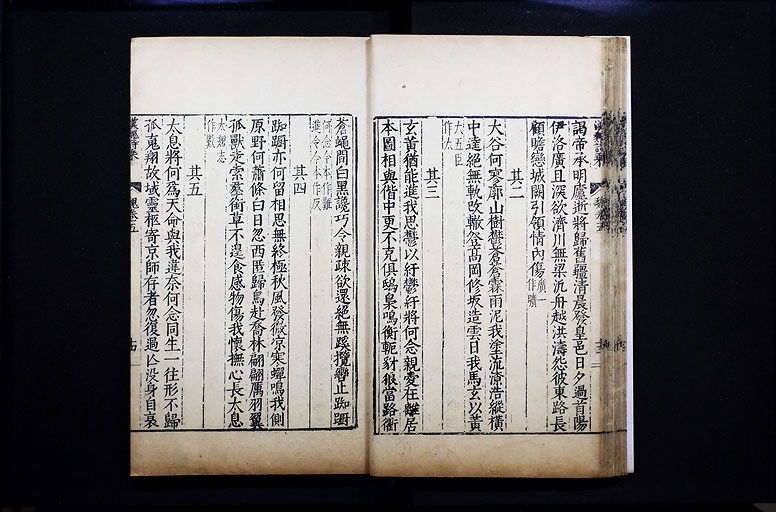 謁帝承明廬逝將歸舊疆清晨發皇邑日夕過首陽
伊洛廣且深欲濟川無梁汎舟越洪濤怨彼東路長
顧瞻戀城闕引領情內傷廣一作曠
其二
大谷何寥廓山樹鬱蒼蒼霖雨泥我塗流潦浩縱橫
中逵絕無軌改轍登高岡修坂造雲日我馬玄以黃
大五臣作太
其三
玄黃猶能進我思鬱以紆鬱紆將何念親愛在離居
本圖相與偕中更不克俱鴟梟鳴衡軛豺狼當路衢
蒼蠅間白黑讒巧令親疎欲還絕無蹊攬轡止踟躕
何念今本作難進令今本作反
其四
踟躕亦何留相思無終極秋風發微凉寒蟬鳴我側
原野何蕭條白日忽西匿歸鳥赴喬林翩翩厲羽翼
孤獸走索羣銜草不遑食感物傷我懷撫心長太息
太魏志作歎
其五
太息將何為天命與我違奈何念同生一往形不歸
孤魂翔故城靈柩寄京師存者忽復過亾沒身自衰
魏卷五